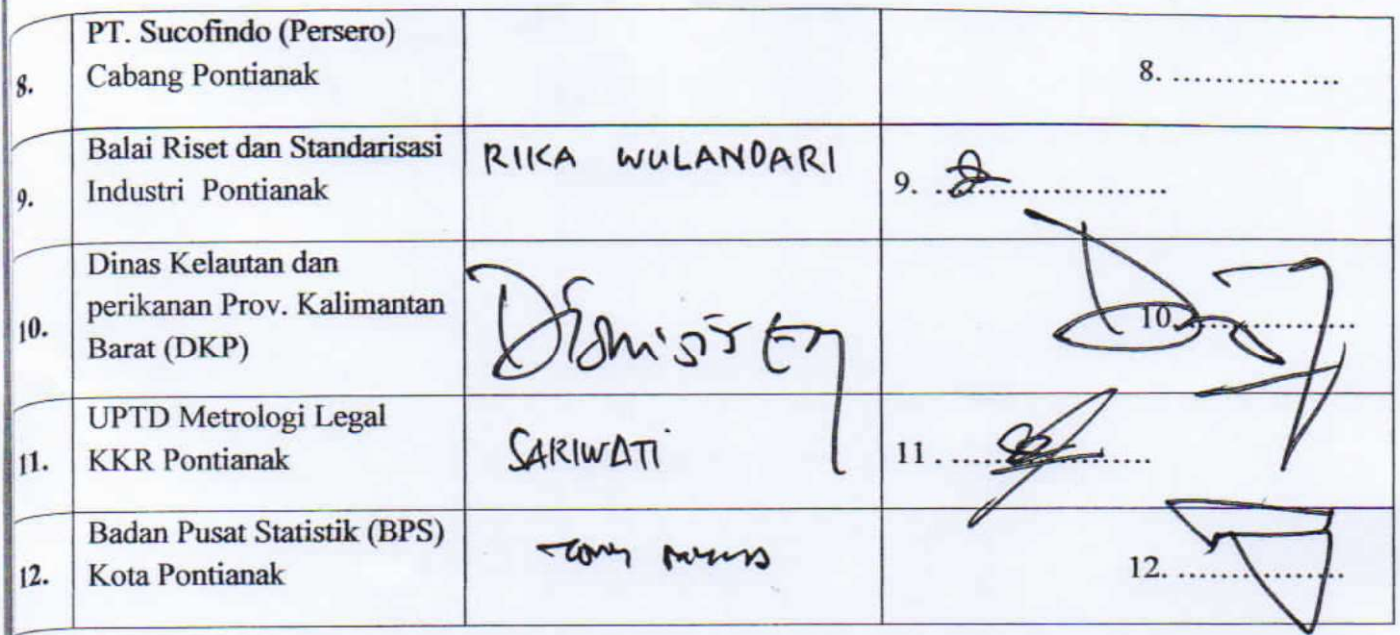 8.
PT. Sucofindo (Persero)
Cabang Pontianak
8. ................
9.
Balai Riset dan Standarisasi
Industri Pontianak
RIKA WULANDARI
9. ....................
10.
Dinas Kelautan dan
perikanan Prov. Kalimantan
Barat (DKP)
10. ................
11.
UPTD Metrologi Legal
KKR Pontianak
SARIWATI
11. ....................
12.
Badan Pusat Statistik (BPS)
Kota Pontianak
12. ................